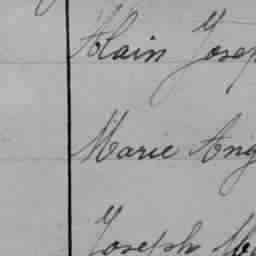 Alain Josep
Marie Ang
Joseph Ma